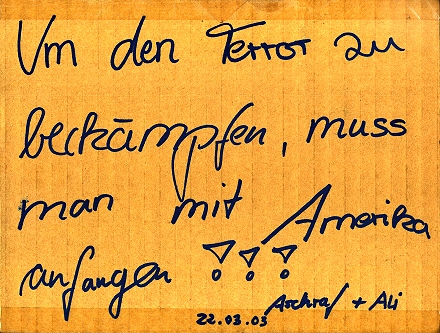 Um den Terror zu
bekämpfen, muss
man mit Amerika
anfangen !!!
22.03.03 Aschraf + Ali